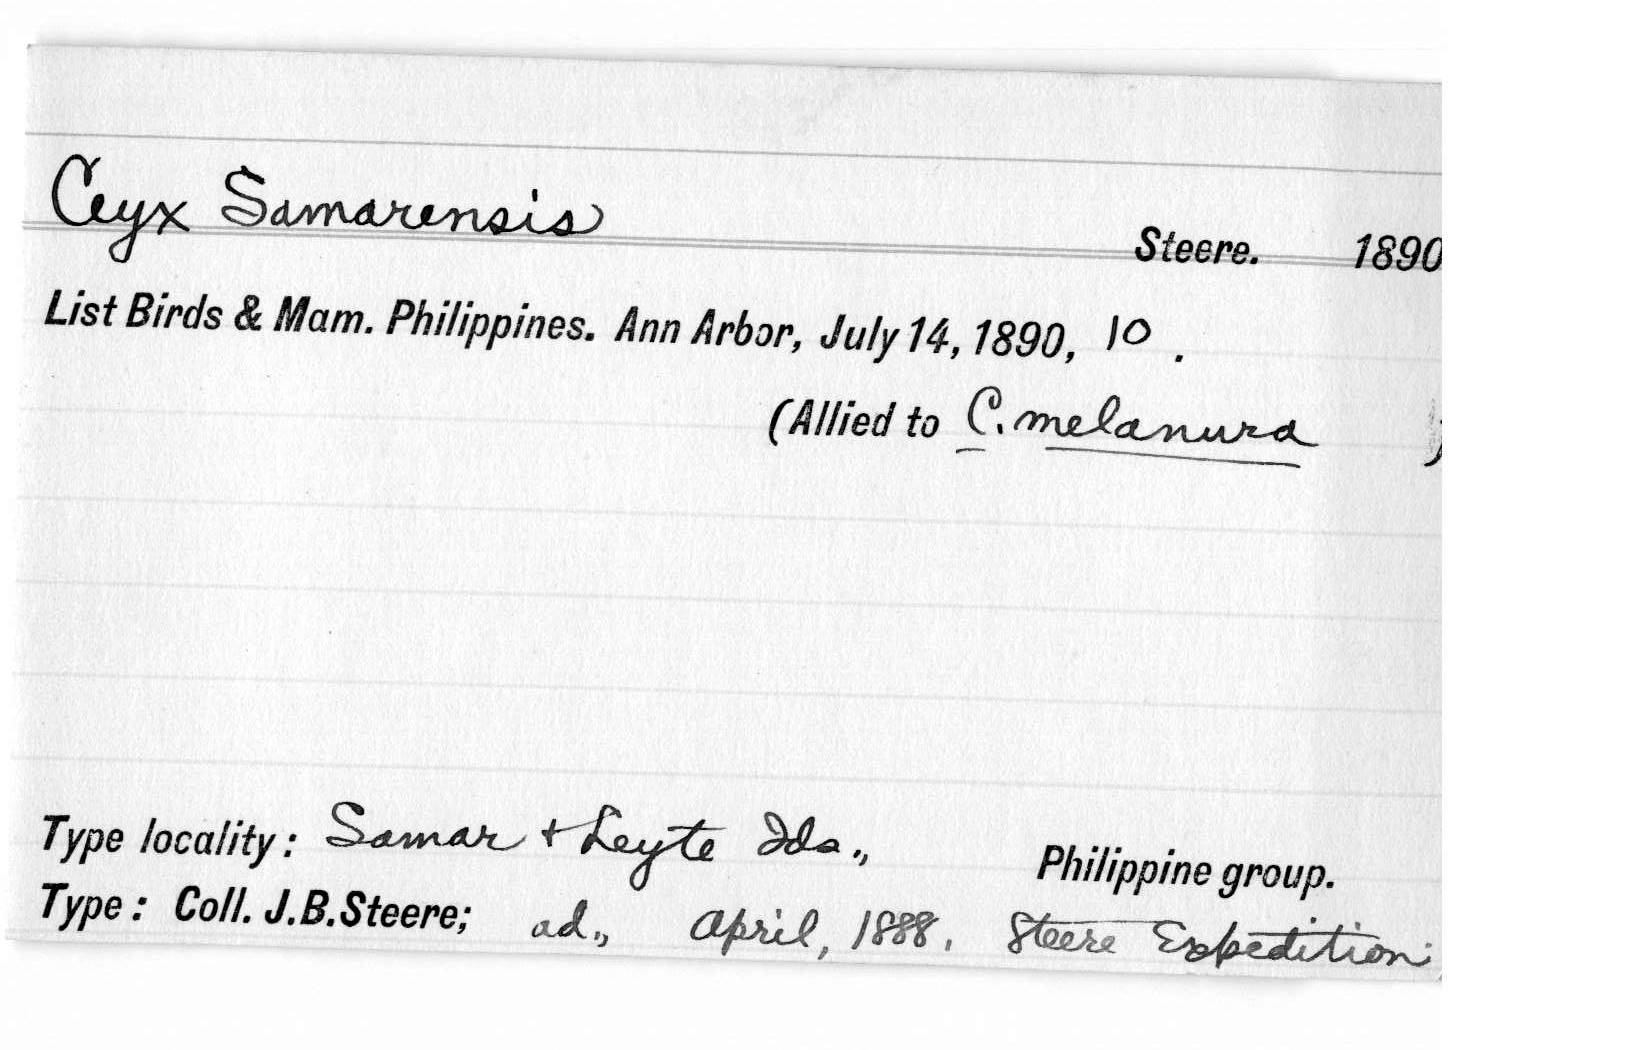 Ceyx Samarensis
Steere. 1890
List Birds & Mam. Philippines. Ann Arbor, July 14, 1890, 10.
(Allied to C. melanura )
Type locality: Samar + Leyte Ids., Philippine group.
Type: Coll. J.B.Steere; ad., April, 1888, Steere Expedition.